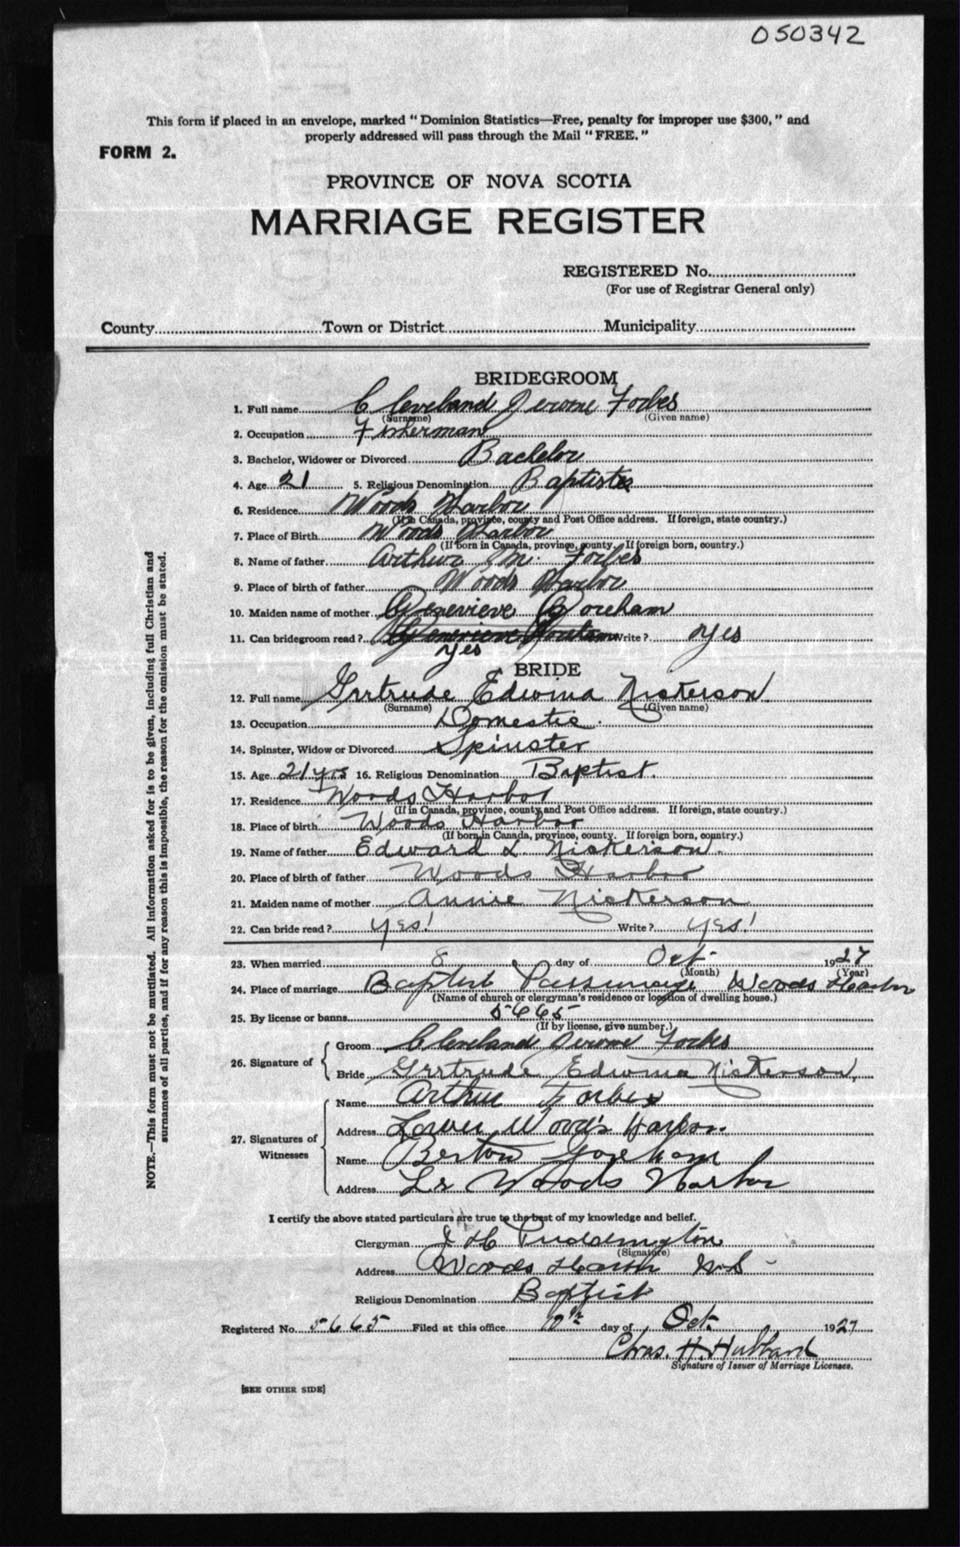 050342
This form if placed in an envelope, marked "Dominion Statistics—Free, penalty for improper use $300," and
properly addressed will pass through the Mail "FREE."
FORM 2.
PROVINCE OF NOVA SCOTIA
MARRIAGE REGISTER
REGISTERED No.
(For use of Registrar General only)
County Town or District Municipality
BRIDEGROOM
1. Full name Cleveland Jerome Forbes
(Surname) (Given name)
2. Occupation Fisherman
3. Bachelor, Widower or Divorced Bachelor
4. Age 21 5. Religious Denomination Baptist
6. Residence Woods Harbor
(If in Canada, province, county and Post Office address. If foreign, state country.)
7. Place of Birth Woods Harbor
(If born in Canada, province, county. If foreign born, country.)
8. Name of father Arthur M. Forbes
9. Place of birth of father Woods Harbor
10. Maiden name of mother Genevieve Goreham
11. Can bridegroom read? Yes Write? Yes
BRIDE
12. Full name Grrtrude Edwina Nickerson
(Surname) (Given name)
13. Occupation Domestic
14. Spinster, Widow or Divorced Spinster
15. Age 21 yrs 16. Religious Denomination Baptist.
17. Residence Woods Harbor
(If in Canada, province, county and Post Office address. If foreign, state country.)
18. Place of birth Woods Harbor
(If born in Canada, province, county. If foreign born, country.)
19. Name of father Edward L. Nickerson.
20. Place of birth of father Woods Harbor
21. Maiden name of mother Annie Nickerson
22. Can bride read? Yes! Write? Yes!
23. When married 8 day of Oct 1927
(Month) (Year)
24. Place of marriage Baptist Woods Harbor
(Name of church or clergyman's residence or location of dwelling house.)
25. By license or banns 5665
(If by license, give number.)
26. Signature of Groom Cleveland Jerome Forbes
Bride Grrtrude Edwina Nickerson,
27. Signatures of Witnesses Name Arthur Forbes
Address Lower Wood's Harbor.
Name Berton Goreham
Address Lr Woods Harbor
I certify the above stated particulars are true to the best of my knowledge and belief.
Clergyman J H Puddington
(Signature)
Address Woods Harbor N.S
Religious Denomination Baptist
Registered No. 5665 Filed at this office 10th day of Oct. 1927
Chas. H. Hubbard
Signature of Issuer of Marriage Licenses.
[SEE OTHER SIDE]
NOTE.—This form must not be mutilated. All information asked for is to be given, including full Christian and
surnames of all parties, and if for any reason this is impossible, the reason for the omission must be stated.